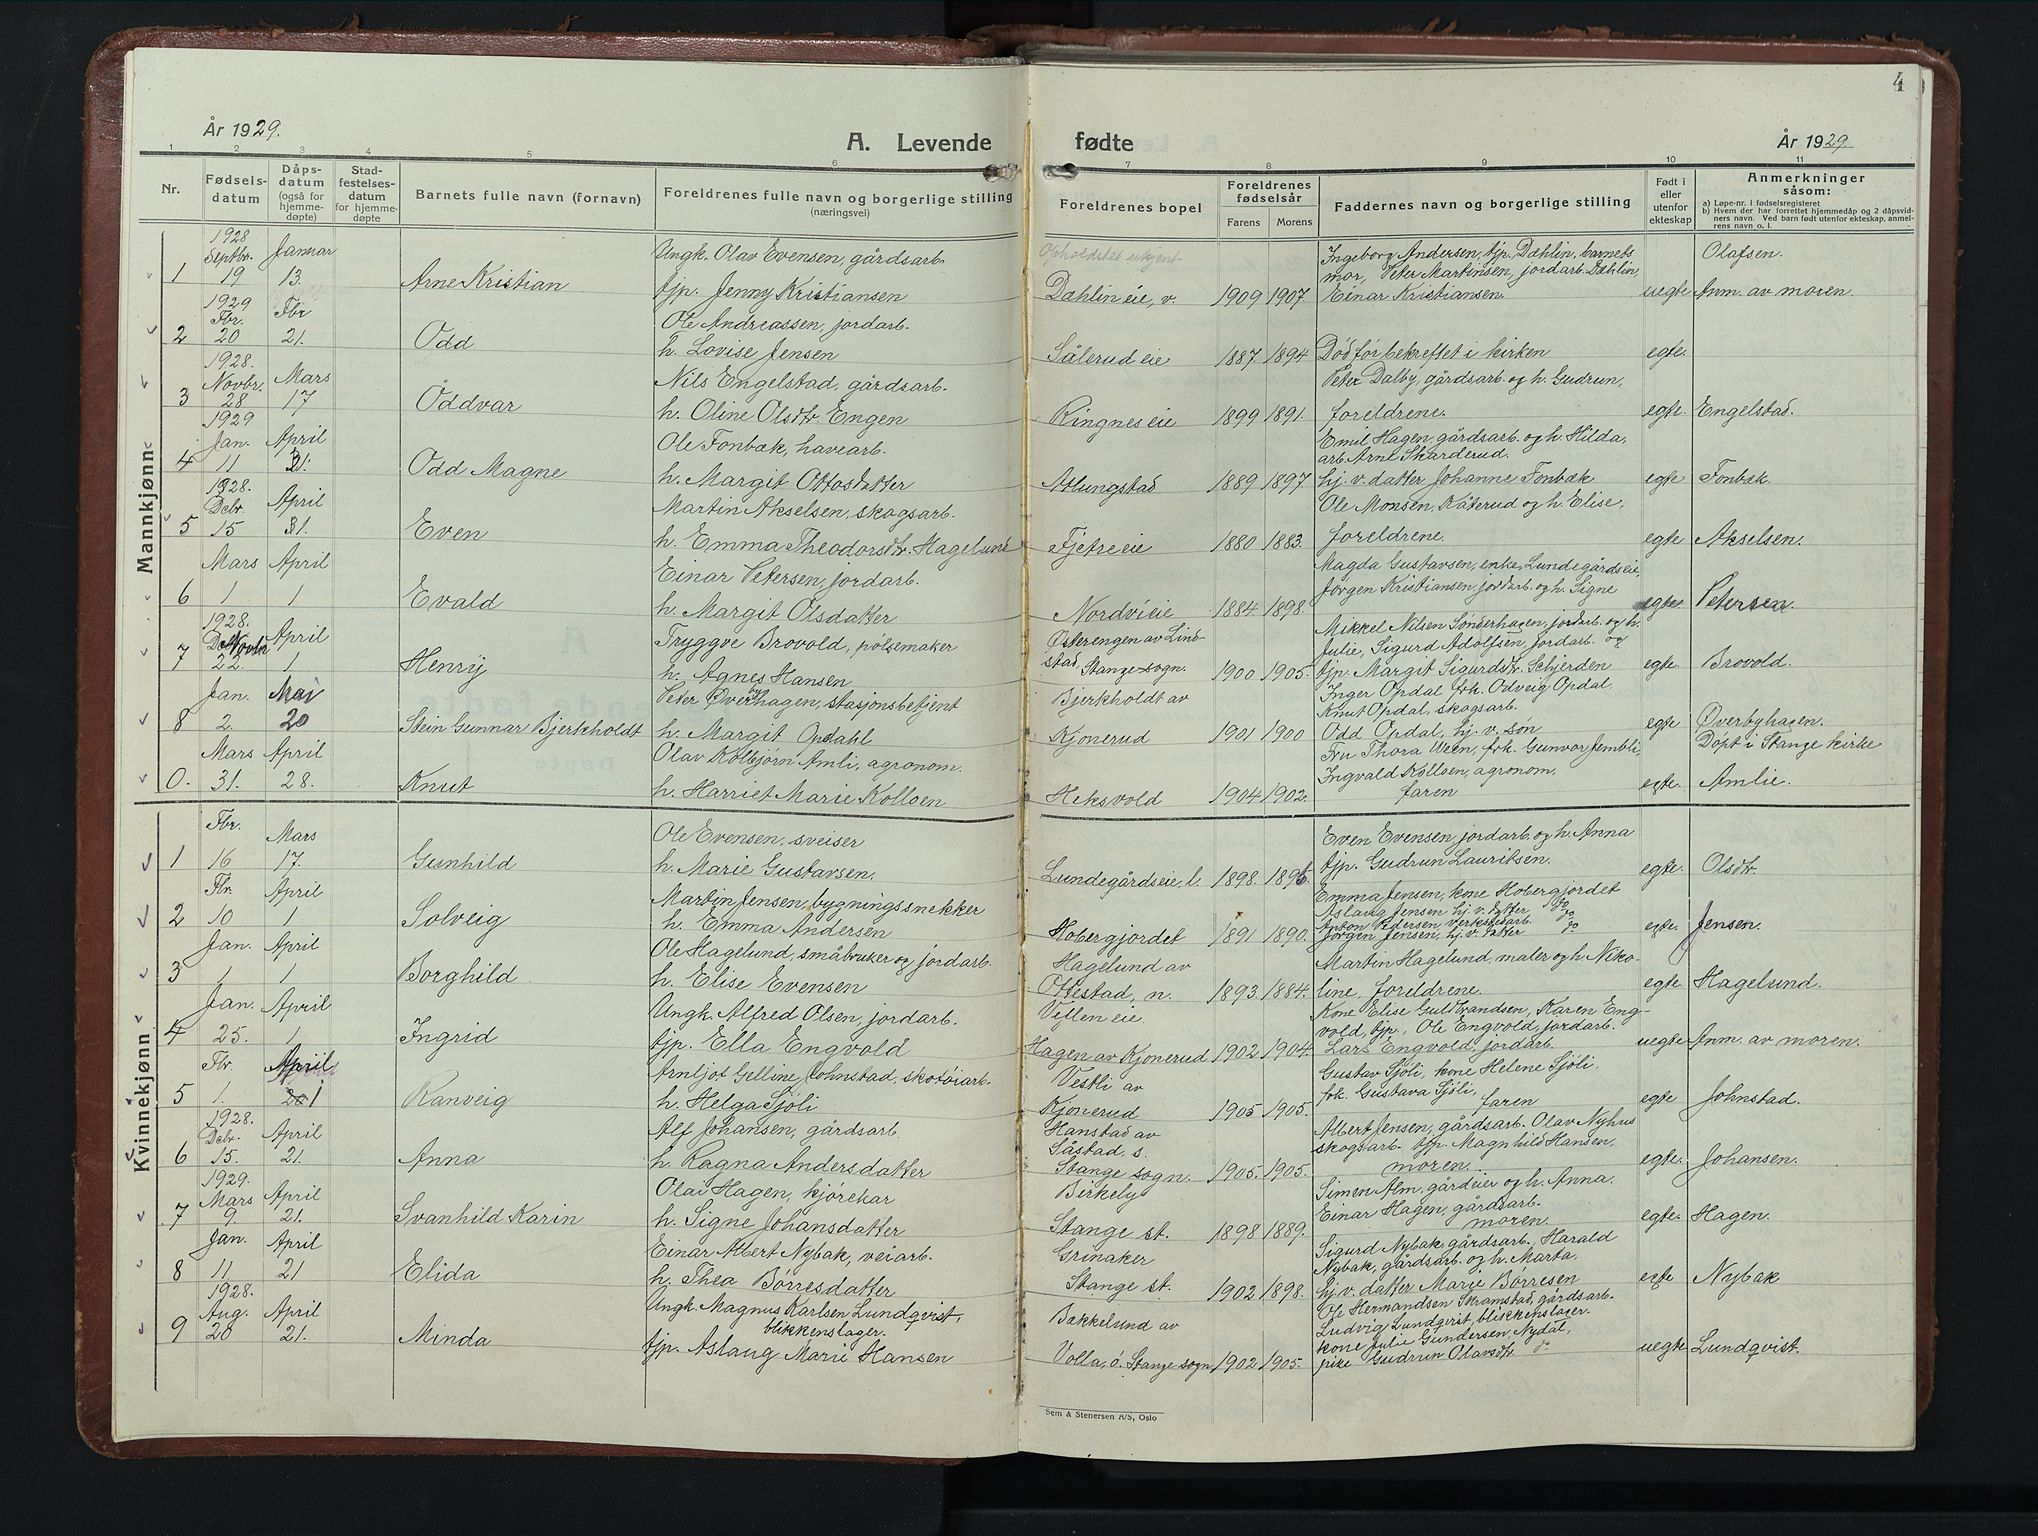 4
År 1929. A. Levende fødte År 1929.
1 2 3 4 5 6 7 8 9 10 11
Nr. Fødsels-datum Dåps-datum (også for hjemme-døpte) Stad-festelses-datum for hjemme-døpte Barnets fulle navn (fornavn) Foreldrenes fulle navn og borgerlige stilling (næringsvei) Foreldrenes bopel Foreldrenes fødselsår Farens Morens Faddernes navn og borgerlige stilling Født i eller utenfor ekteskap Anmerkninger såsom:
a) Løpe-nr. i fødselsregisteret
b) Hvem der har forrettet hjemmedåp og 2 dåpsvid-ners navn. Ved barn født utenfor ekteskap, anmel-rens navn o. l.
Mannkjønn
1928 Septbr. Januar Ungk. Olav Evensen, gårdsarb. Opholdsted ukjent Ingeborg Andersen, tjp. Dæhlin, barnets Olafsen.
mor, Peter Martinsen, jordarb. Dæhlin,
1 19 13. Arne Kristian tjp. Jenny Kristiansen Dæhlin eie, v. 1909 1907. Einar Kristiansen. uegte Anm. av moren.
1929 Fbr. Fbr Ole Andreassen, jordarb.
2 20 21. Odd h. Lovise Jensen Sålerud eie 1887. 1894 Død før bekreftet i kirken egte.
1928. Novbr. Mars Nils Engelstad, gårdsarb. Peter Dalby, gårdsarb. og h. Gudrun,
3 28 17 Oddvar h. Oline Olsdtr. Engen Ringnes eie 1899 1891. foreldrene. egte. Engelstad.
1929 Jan. April Ole Fonbæk, havearb. Emil Hagen, gårdsarb. og h. Hilda,
arb. Arne Skarderud.
4 11 21. Odd Magne h. Margit Ottosdatter Atlungstad 1889 1897 hj. v. datter Johanne Fonbæk egte Fonbæk.
1928. Debr. April Martin Akselsen, skogsarb. Ole Monsen, Råterud og h. Elise,
5 15 21. Even h. Emma Theodorsdtr. Hagelund Fjetre eie 1880 1883. foreldrene. egte Akselsen.
Mars April Einar Petersen, jordarb. Magda Gustavsen, enke, Lundegårdseie,
Jørgen Kristiansen, jordarb. og h. Signe
6 1 1 Evald h. Margit Olsdatter Nordvi eie 1884 1898. egte Petersen.
1928. Novbr April Tryggve Brovold, pølsemaker Østerengen av Lin- Mikkel Nilsen Sønderhagen, jordarb. og h.
stad, Stange sogn. Julie, Sigurd Adolfsen, jordarb. og
7 22. 1 Henry h. Agnes Hansen 1900 1905. tjp. Margit Sigurdsdtr. Schjerden egte Brovold.
Jan. Mai Peter Øverbyhagen, stasjonsbetjent Bjerkholdt av Inger Opdal, frk. Odveig Opdal,
Knut Opdal, skogsarb.
8 2. 20 Stein Gunnar Bjerkholdt h. Margit Opdahl Kjonerud 1901 1900 Odd Opdal, hj. v. søn egte Øverbyhagen.
Døpt i Stange kirke
Mars April Olav Kolbjørn Amli, agronom. Fru Thora Ween, frk. Gunvor Jembli,
Ingvald Kolloen, agronom.
0. 31. 28. Knut h. Harriet Marie Kolloen Heksvold 1904 1902. faren egte Amlie.
Kvinnekjønn
Fbr. Mars Ole Evensen, sveiser Even Evensen, jordarb. og h. Anna
1 16 17. Gunhild h. Marie Gustavsen. Lundegårdseie, l. 1898. 1896 tjp. Gudrun Lauritsen. egte. Olsdtr.
Fbr. April Martin Jensen, bygningssnekker Emma Jensen, kone Hobergjordet
Aslaug Jensen hj. v. datter do
Anton Pedersen verkstedarb. do
2 10 1 Solveig h. Emma Andersen Hobergjordet 1891 1890. Jørgen Jensen, hj. v. datter do egte. Jensen.
Jan. April Ole Hagelund, småbruker og jordarb. Hagelund av Martin Hagelund, maler og h. Niko-
3 1 1 Borghild h. Elise Evensen Ottestad, n. 1893. 1884. line, foreldrene. egte. Hagelund.
Jan. April Ungk. Alfred Olsen, jordarb. Vejlen eie. Kone Elise Guldbrandsen, Karen Eng-
vold, tjp., Ole Engvold, jordarb.
4 25. 1 Ingrid tjp. Ella Engvold Hagen av Kjonerud 1902 1904. Lars Engvold, jordarb. uegte Anm. av moren.
Fbr. April Arnljot Gelline Johnstad, skotøiarb. Vestli av Gustav Sjöli, kone Helene Sjöli.
frk. Gustava Sjöli,
5 1. 1 Ranveig h. Helga Sjöli Kjonerud 1905 1905. faren egte Johnstad.
1928. Debr. April Alf Johansen, gårdsarb. Hanstad av Albert Jensen, gårdsarb. Olav Nyhus
Såstad, s. skogsarb. tjp. Magnhild Hansen,
6 15. 21. Anna h. Ragna Andersdatter Stange sogn. 1905. 1905. moren. egte. Johansen.
1929. Mars April Olai Hagen, kjørekar Birkely Simen Alm, gårdeier og h. Anna.
Einar Hagen, gårdsarb.
7 9. 21. Svanhild Karin h. Signe Johansdatter Stange st. 1898 1889. moren. egte. Hagen.
Jan. April Einar Albert Nybak, veiarb. Grinaker Sigurd Nybak, gårdsarb., Harald
Nybak, gårdsarb. og h. Marta.
8 11 21 Elida h. Thea Børresdatter Stange st. 1902 1898. hj. v. datter Marie Børresen egte Nybak
1928. Aug. April Ungk. Magnus Karlsen Lundqvist, Bækkelund av Ole Hermandsen Skramstad, gårdsarb.
blikkenslager. Ludvig Lundqvist, blikkenslager.
kone Julie Gundersen, Nydal,
9 20 21. Minda tjp. Aslaug Marie Hansen Volla, ö. Stange sogn 1902 1905. pike Gudrun Olavsdtr. do uegte Lundqvist.
Sem & Stenersen A/S, Oslo